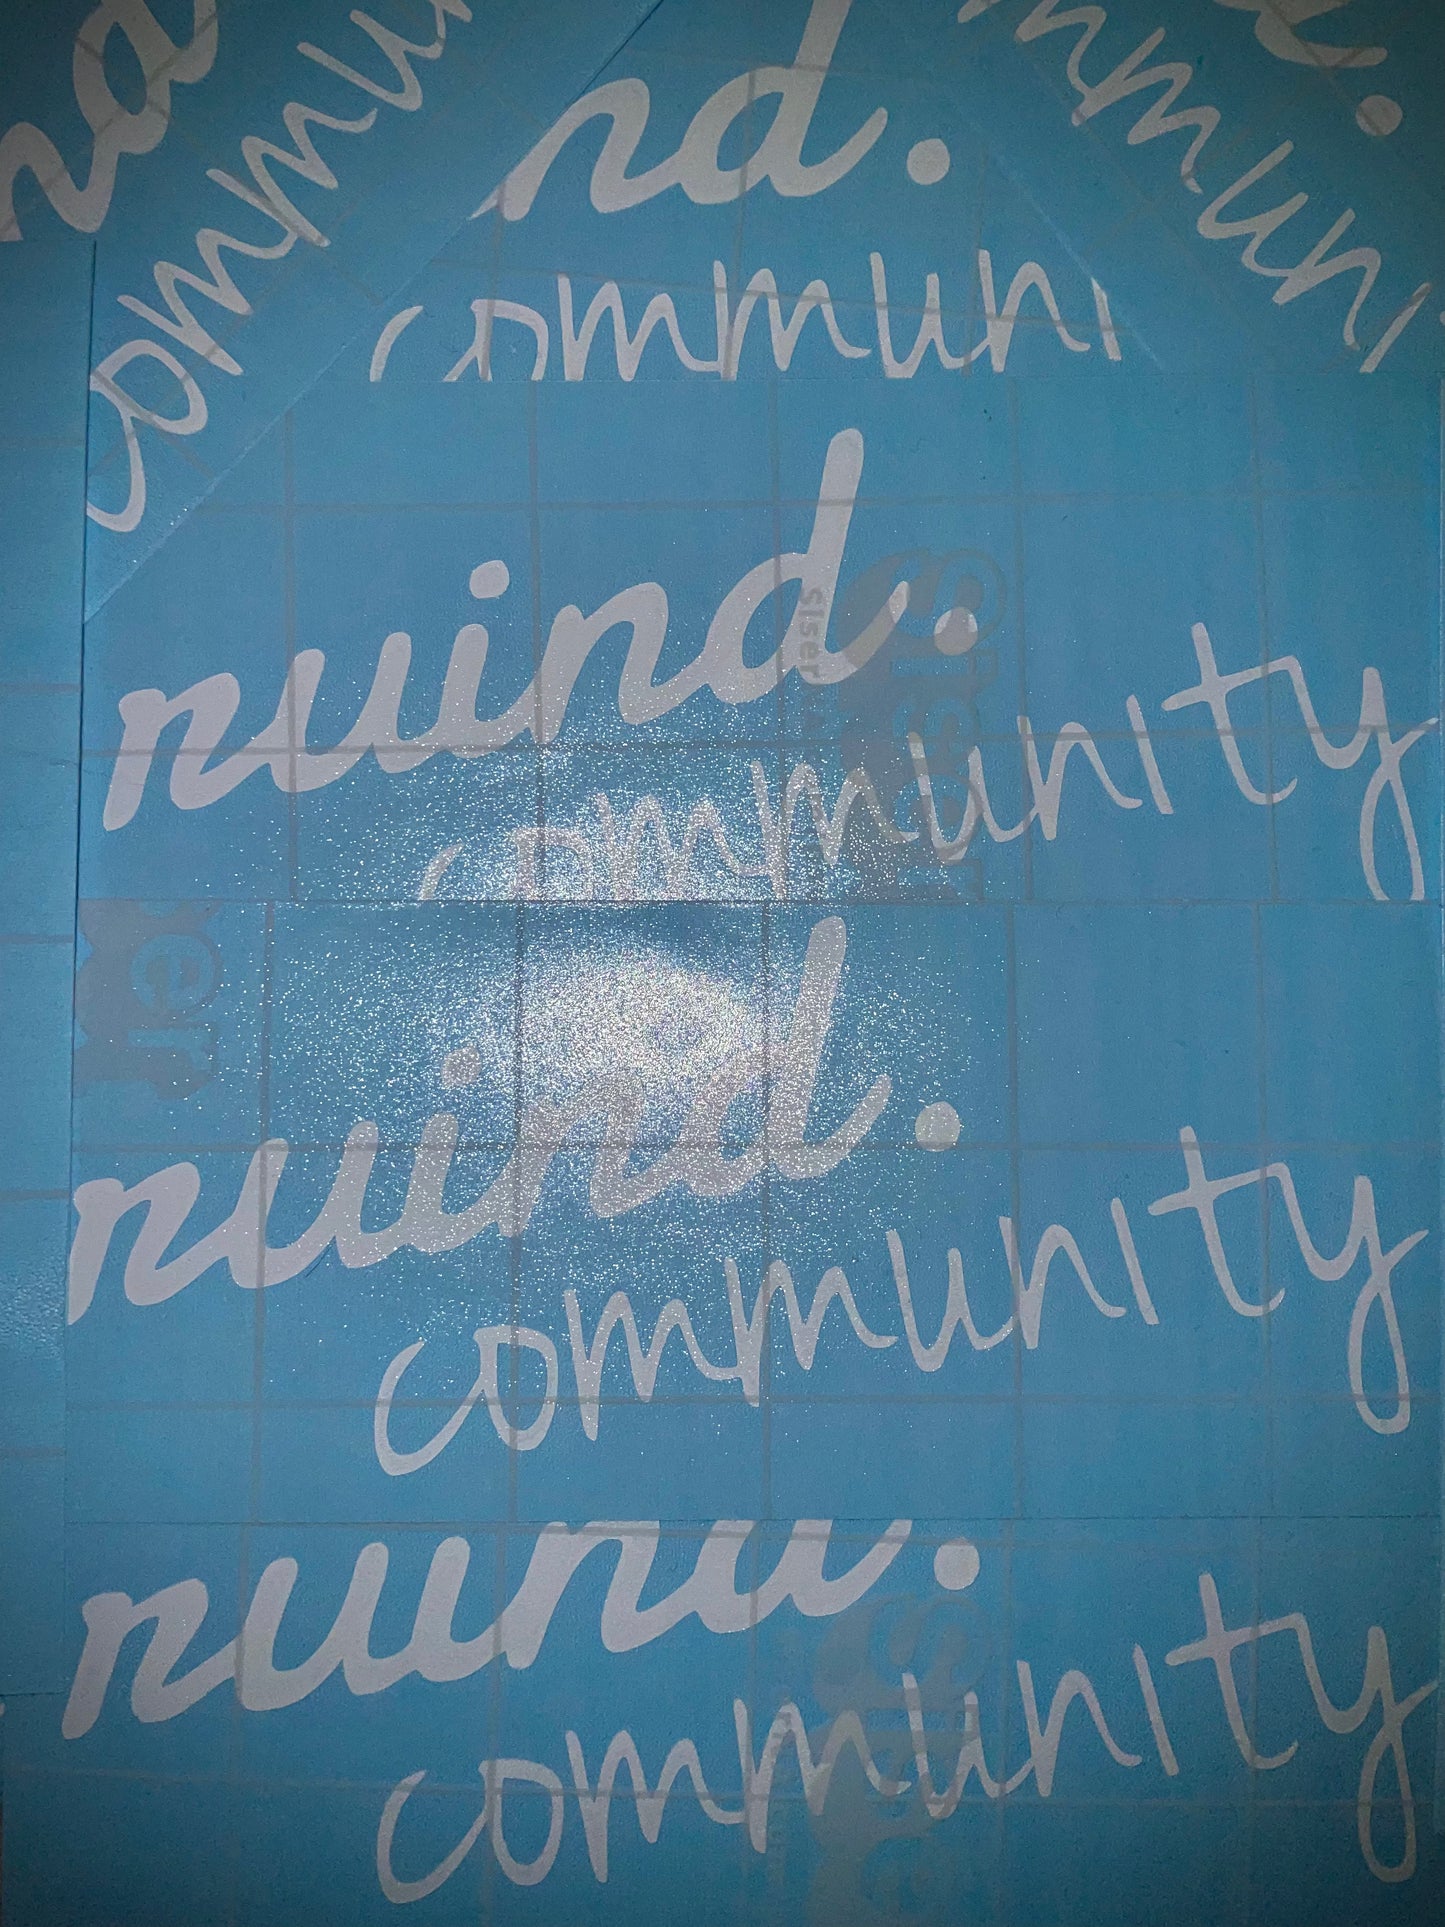 nd
commu
nd.
communi
mmuni
nuind.
Siser
Siser
community
er
nuind.
community
nuind.
community